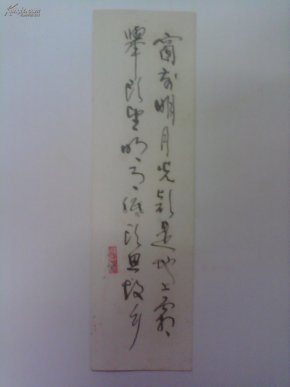 窗前明月光疑是地上霜
舉头望明月低头思故乡